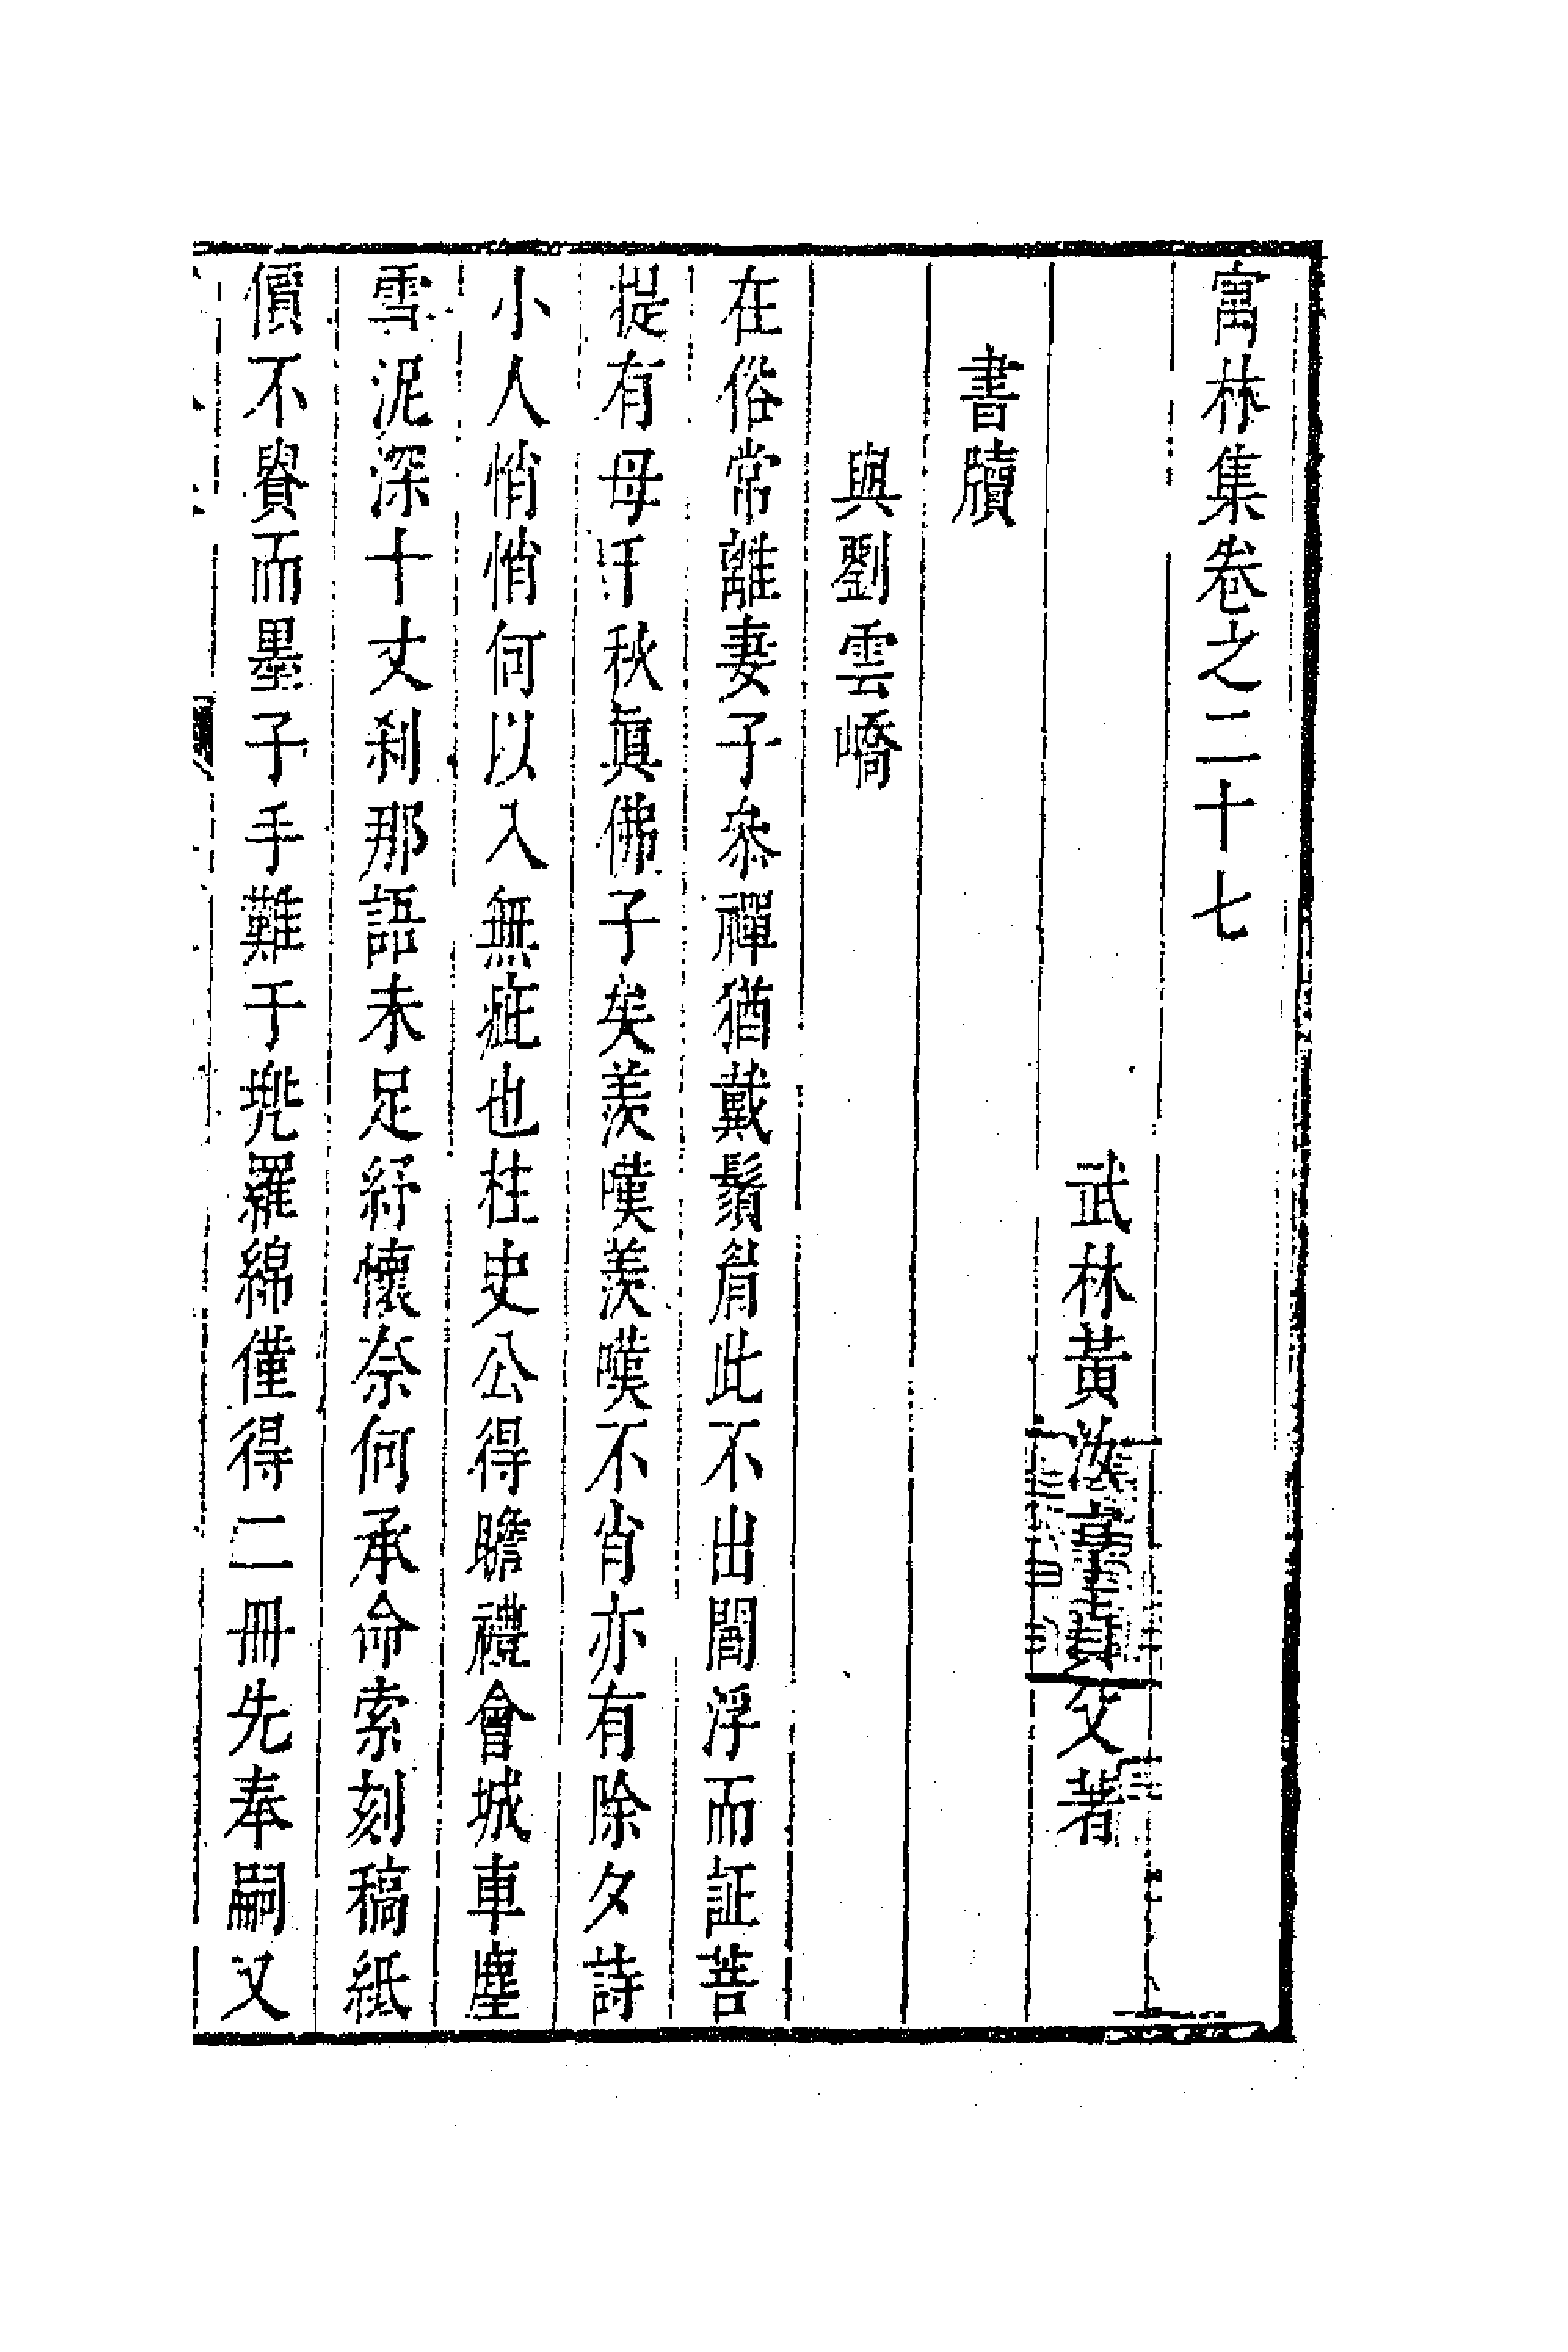 寓林集卷之二十七
武林黃汝亨貞父著
書牘
與劉雲嶠
在俗常離妻子叅禪猶戴鬚眉此不出閻浮而証菩
提有母千秋眞佛子矣羨嘆羨嘆不肖亦有除夕詩
小人悄悄何以入無疵也柱史公得瞻禮會城車塵
雪泥深十丈刹那語未足紓懷奈何承命索刻稿紙
價不貲而墨子手難于兠羅綿僅得二冊先奉嗣又